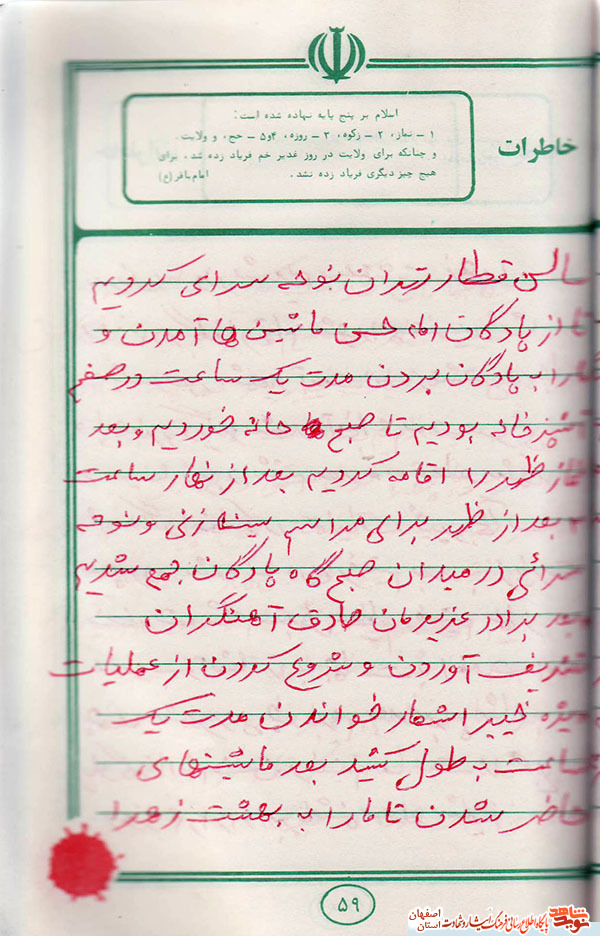 اسلام بر پنج پایه نهاده شده است:
۱ - نماز، ۲ - زکوة، ۳ - روزه، ۴و۵ - حج، و ولایت.
و چنانکه برای ولایت در روز غدیر خم فریاد زده شد، برای
هیچ چیز دیگری فریاد زده نشد. امام باقر (ع)
خاطرات
سالن قطار تهران نوحه سرای کردیم
تا از پادگان امام حسن ماشین ها آمدن و
به پادگان بردن مدت یک ساعت در صف
آشپزخانه بودیم تا صبحانه خوردیم و بعد
نماز ظهر را اقامه کردیم بعد از نهار ساعت
بعد از ظهر برای مراسم سینه زنی و نوحه
سرائی در میدان صبح گاه پادگان جمع شدیم
برادر عزیزمان صادق آهنگران
تشریف آوردن و شروع کردن از عملیات
ویژه خیبر اشعار خواندن مدت یک
ساعت بطول کشید بعد ماشینهای
حاضر شدن تا مارا به بهشت زهرا
۵۹
نوید شاهد
پایگاه اطلاع رسانی فرهنگ ایثار و شهادت
استان اصفهان